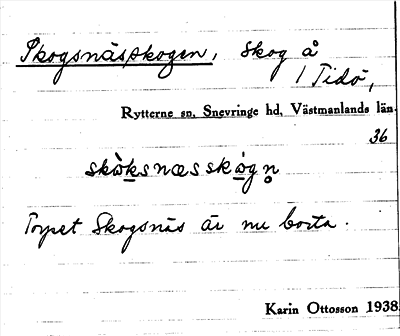 Skogsnässkogen, skog å
/ Tidö,
Rytterne sn, Snevringe hd, Västmanlands län.
36
skòksnæsskògn̥
Torpet Skogsnäs är nu borta.
Karin Ottosson 1938